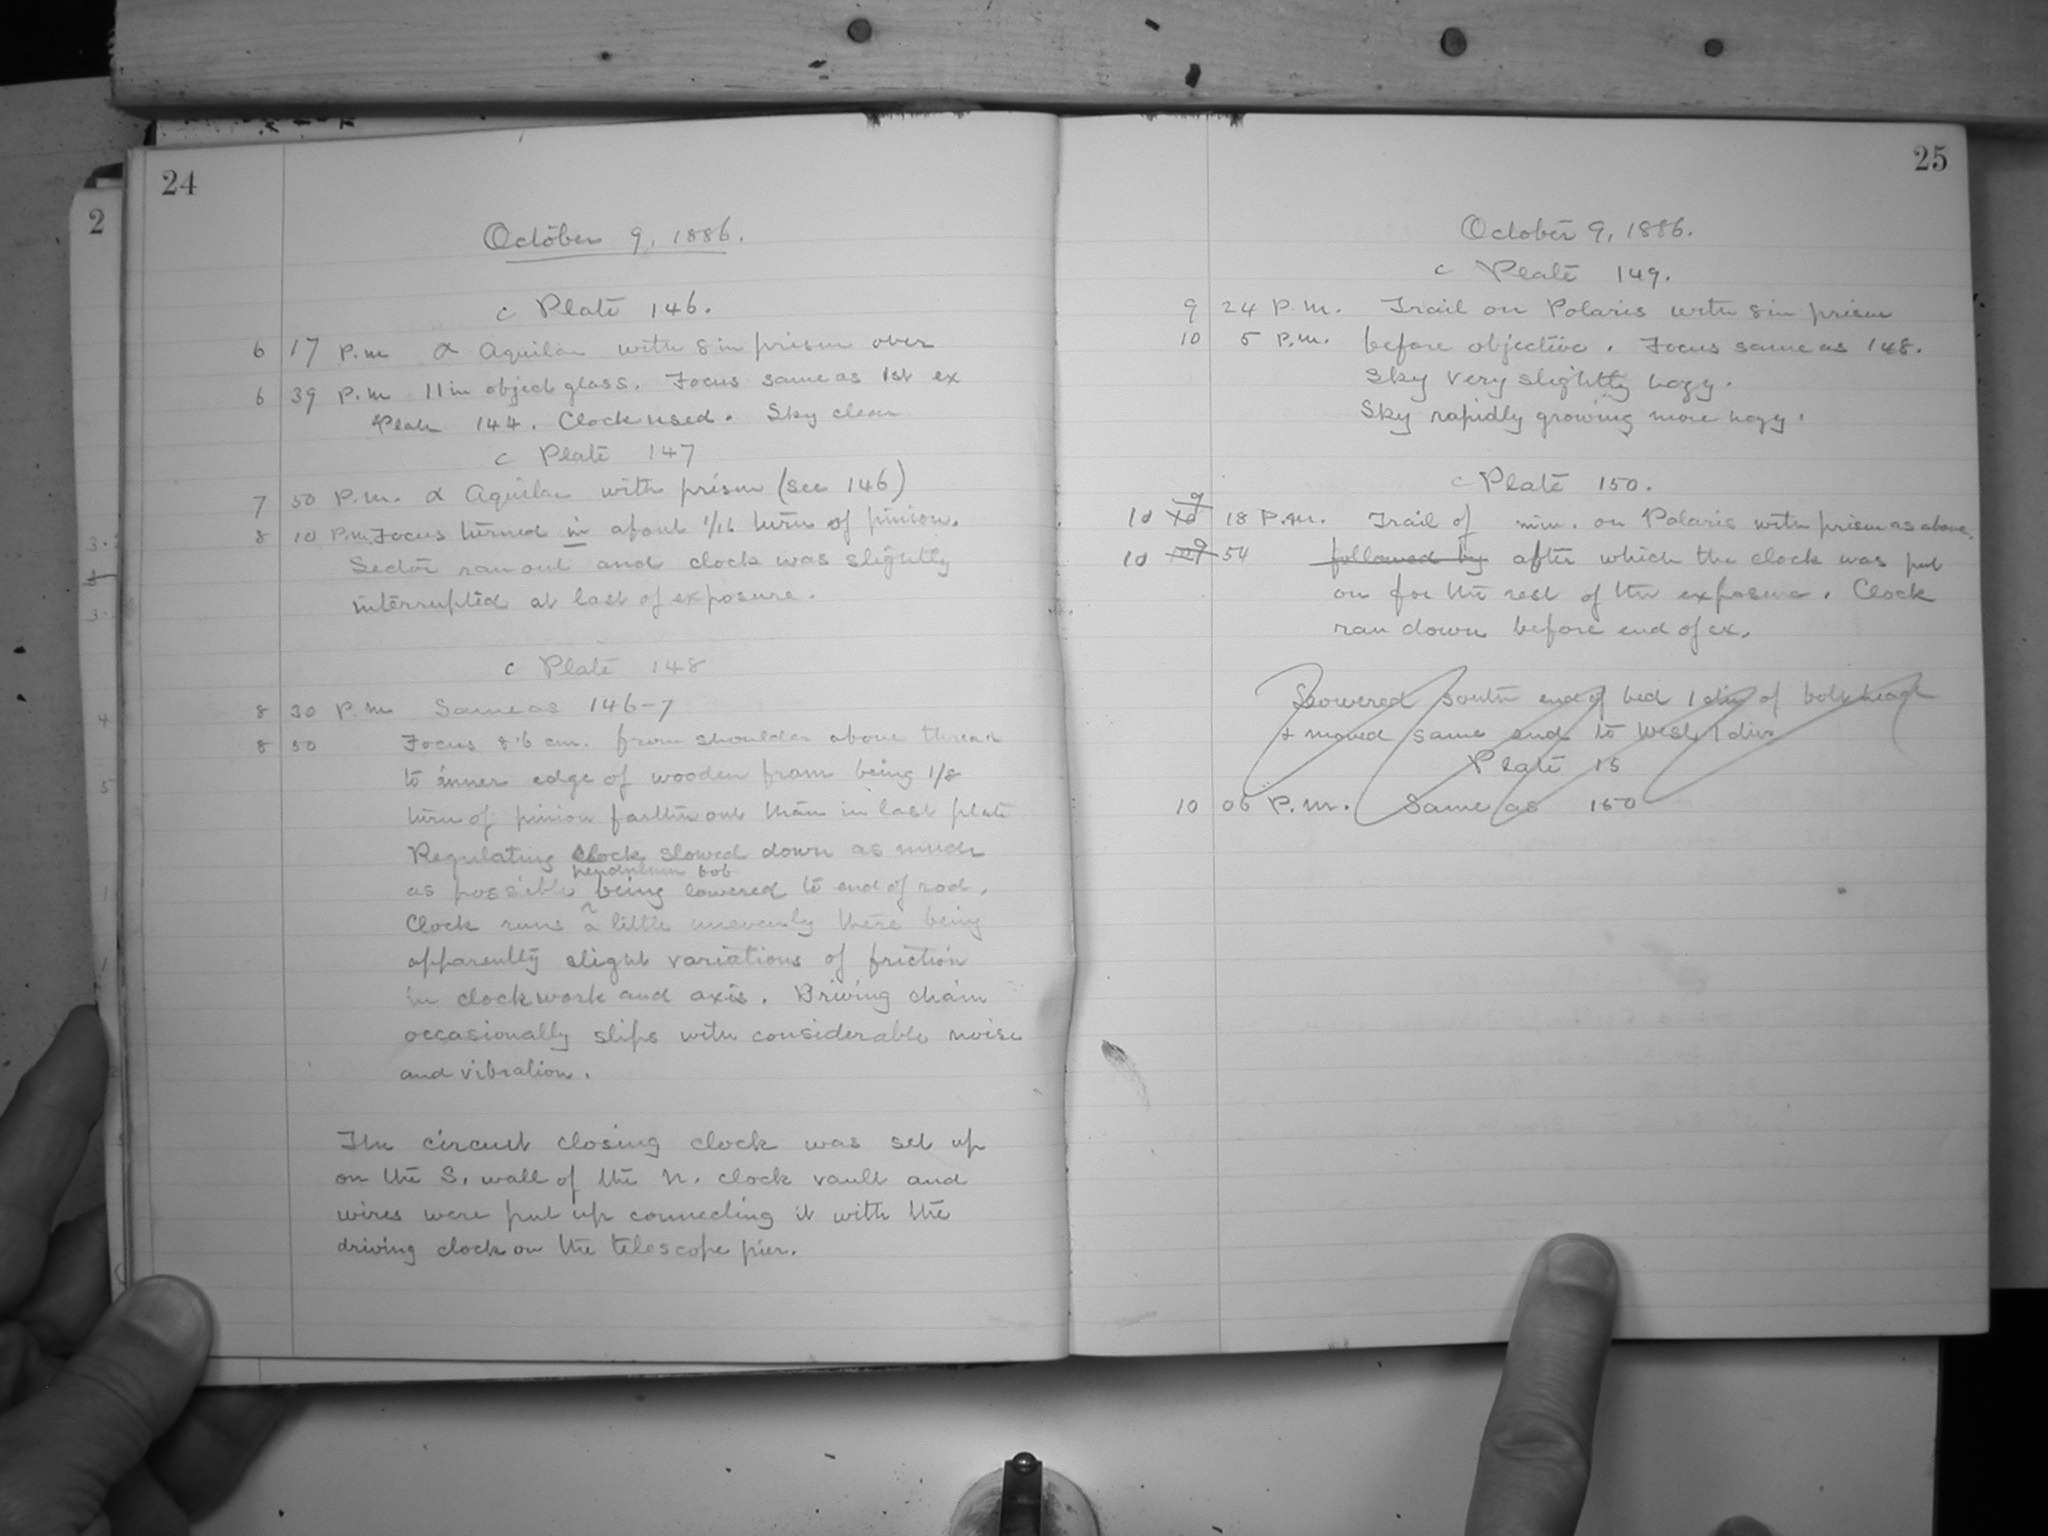 24
October 9, 1886.
c Plate 146.
6 17 P.m α Aquilae with 8 in prism over
6 39 P.m 11 in object glass. Focus same as 1st ex
Plate 144. Clock used. Sky clear
c Plate 147
7 50 P.m. α Aquilae with prism (see 146)
8 10 P.m. Focus turned in about 1/16 turn of pinion.
Sector ran out and clock was slightly
interrupted at last of exposure.
c Plate 148
8 30 P.m Same as 146-7
8 50 Focus 8.6 cm. from shoulder above thread
to inner edge of wooden fram being 1/8
turn of pinion farther out than in last plate
Regulating clock slowed down as much
pendulum bob
as possible being lowered to end of rod.
Clock runs a little unevenly there being
apparently slight variations of friction
in clockwork and axis. Driving chain
occasionally slips with considerable noise
and vibration.
The circuit closing clock was set up
on the S. wall of the N. clock vault and
wires were put up connecting it with the
driving clock on the telescope pier.
2
25
October 9, 1886.
c Plate 149.
9 24 P.m. Trail on Polaris with 8 in prism
10 5 P.m. before objective. Focus same as 148.
Sky very slightly hazy.
Sky rapidly growing more hazy.
c Plate 150.
9
10 10 18 P.m. Trail of min. on Polaris with prism as above.
10 54 followed by after which the clock was put
on for the rest of the exposure. Clock
ran down before end of ex.
Lowered south end of bed 1 div of bolt head
& moved same end to west 1 div.
Plate 15
10 06 P.m. Same as 150